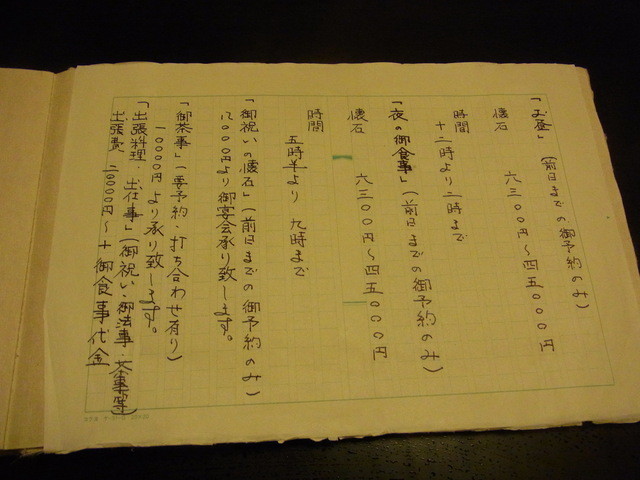 「お昼」(前日までの御予約のみ)
懐石 六三〇〇円〜四五〇〇〇円
時間
十二時より二時まで
「夜の御食事」(前日までの御予約のみ)
懐石 六三〇〇円〜四五〇〇〇円
時間
五時半より 九時まで
「御祝いの懐石」(前日までの御予約のみ)
八〇〇〇円より御宴会承り致します。
「御茶事」(要予約・打ち合わせ有り)
一〇〇〇〇円より承り致します。
「出張料理 出仕事」(御祝い・御法事・茶事等)
出張費 二〇〇〇〇円〜+御食事代金